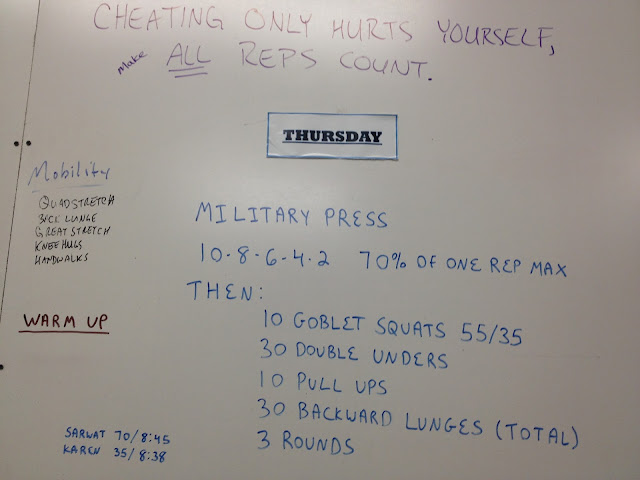 CHEATING ONLY HURTS YOURSELF,
Make ALL REPS COUNT.
THURSDAY
Mobility
QUADSTRETCH
BACK LUNGE
GREAT STRETCH
KNEE HUGS
HANDWALKS
WARM UP
MILITARY PRESS
10-8-6-4-2 70% OF ONE REP MAX
THEN:
10 GOBLET SQUATS 55/35
30 DOUBLE UNDERS
10 PULL UPS
30 BACKWARD LUNGES (TOTAL)
3 ROUNDS
SARWAT 70/8:45
KAREN 35/8:38